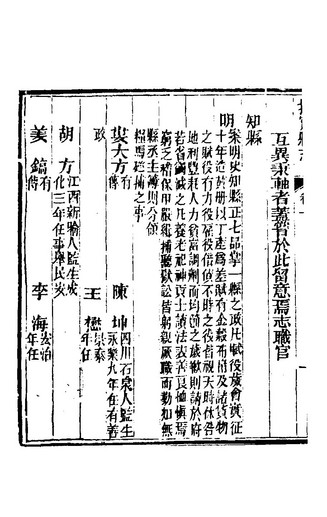 互異秉軸者蓋嘗於此留意焉志職官
知縣
明
案明史知縣正七品掌一縣之政凡賦役歲會實征
十年造黃冊以丁產為差賦有金穀布帛及諸貨物
之賦役有力役雇役借倩不時之役皆視天時休咎
地利豐耗人力貧富調劑而均節之歲歉則請於府
若省蠲減之凡養老祀神貢士讀法表善良恤窮
乏稽保甲嚴緝捕聽獄訟皆躬親厥職而勤如無
縣丞主簿則分領
糧馬巡捕之事
婁大方有傳 陳坤四川石泉人監生永樂九年任有善
政 王懋景泰年任
胡方江西新喻人監生成化三年任事舉民安
姜鎬有傳 李海弘治年任